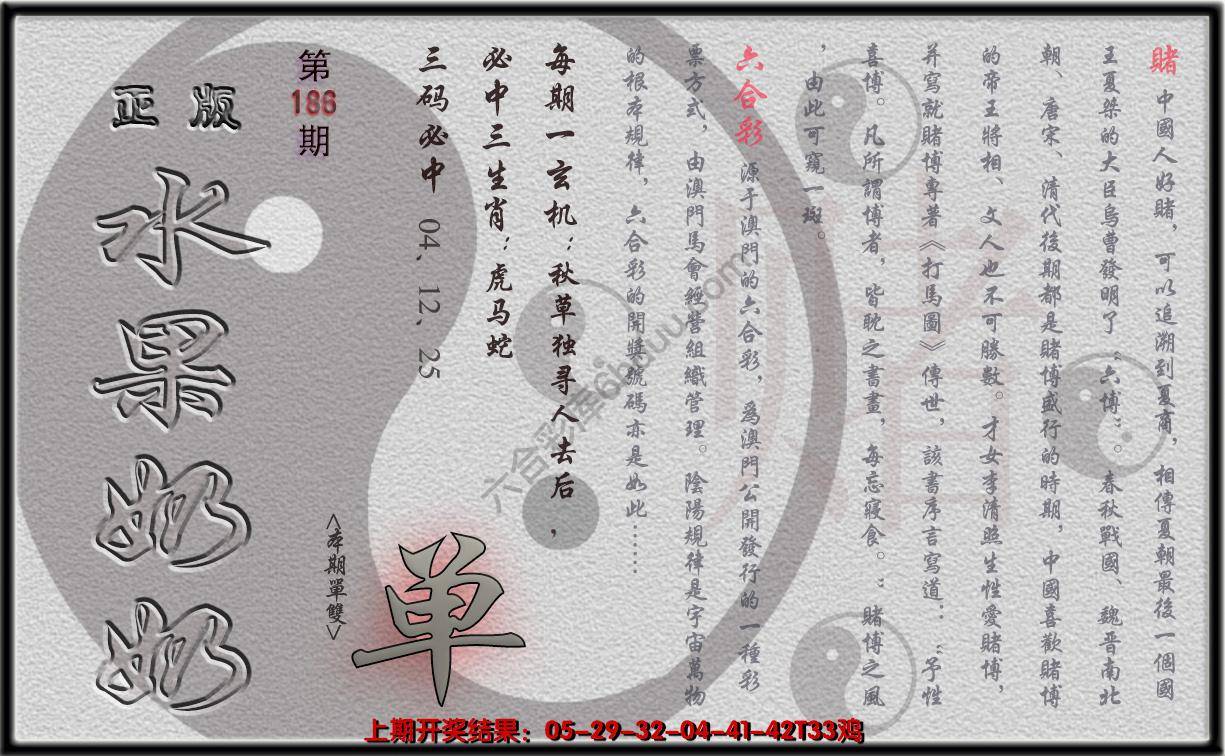 賭 中國人好賭，可以追溯到夏商，相傳夏朝最後一個國
王夏桀的大臣烏曹發明了“六博”。春秋戰國、魏晋南北
朝、唐宋、清代後期都是賭博盛行的時期，中國喜歡賭博
的帝王將相、文人也不可勝數。才女李清照生性愛賭博，
并寫就賭博專著《打馬圖》傳世，該書序言寫道：“予性
喜博。凡所謂博者，皆耽之書畫，每忘寢食。”賭博之風
，由此可窺一斑。
六合彩 源于澳門的六合彩，爲澳門公開發行的一種彩
票方式，由澳門馬會經營組織管理。陰陽規律是宇宙萬物
的根本規律，六合彩的開獎號碼亦是如此……
每期一玄机：秋草独寻人去后，
必中三生肖：虎马蛇
三码必中 04、12、25
第
186
期
<本期單雙>
单
正版
水果奶奶
賭
六合彩库6huuu.com
上期开奖结果：05-29-32-04-41-42T33鸡